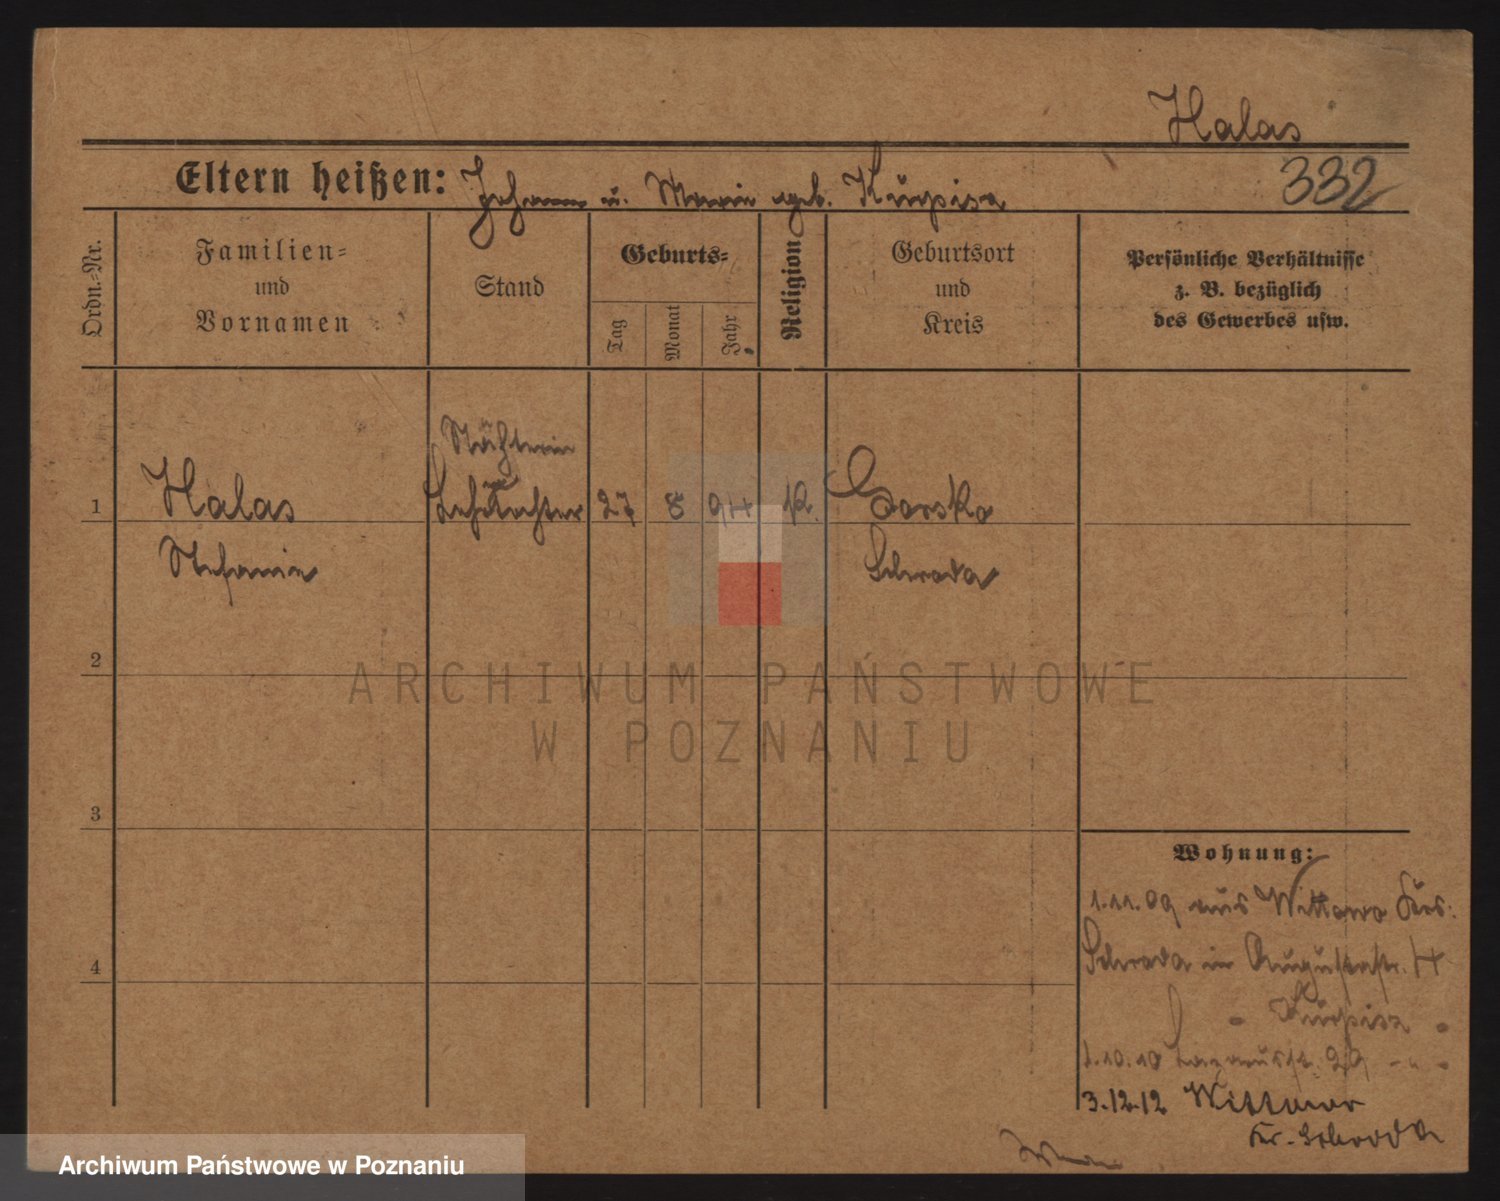 Halas
332
Eltern heißen: Johann u. Marie geb. Kurpisz
Ordn.-Nr.
Familien-
und
Vornamen
Stand
Geburts-
Tag
Monat
Jahr
Religion
Geburtsort
und
Kreis
Persönliche Verhältnisse
z. B. bezüglich
des Gewerbes usw.
Nähterin
1 Halas 27 8 94 K. Gorska
Stefanie Schroda
2
3
4
Wohnung:
1.11.09 aus Wittowo Krs:
Schroda in Augustastr. 4
Kurpisz
1.10.10 29
3.12.12 Wittowo
Kr. Schroda
ARCHIWUM PAŃSTWOWE
W POZNANIU
Archiwum Państwowe w Poznaniu